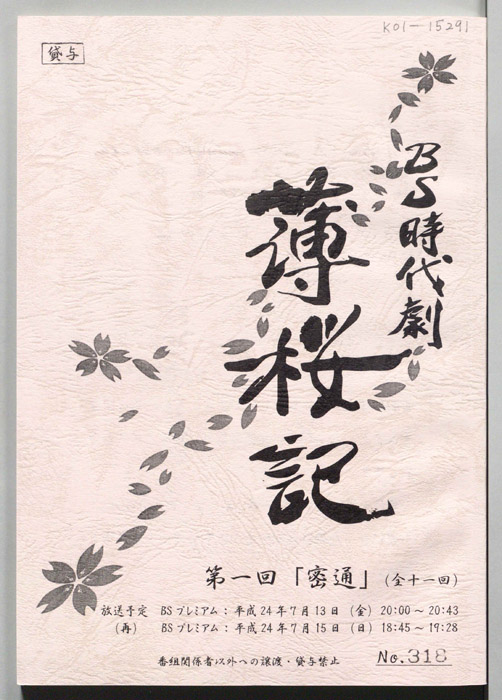 K01-15291
貸与
BS時代劇
薄桜記
第一回「密通」(全十一回)
放送予定 BSプレミアム:平成24年7月13日(金)20:00～20:43
(再) BSプレミアム:平成24年7月15日(日)18:45～19:28
番組関係者以外への譲渡・貸与禁止
No.318